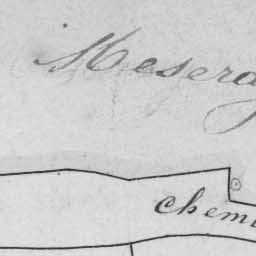 Meserg
Chemi